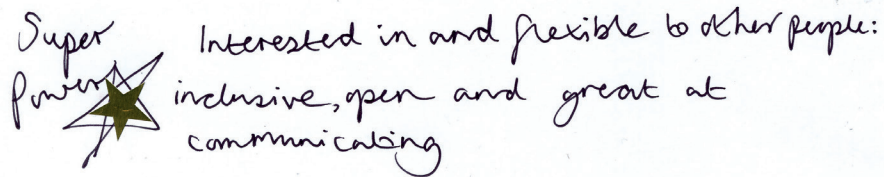 Super
Power
Interested in and flexible to other people:
inclusive, open and great at
communicating